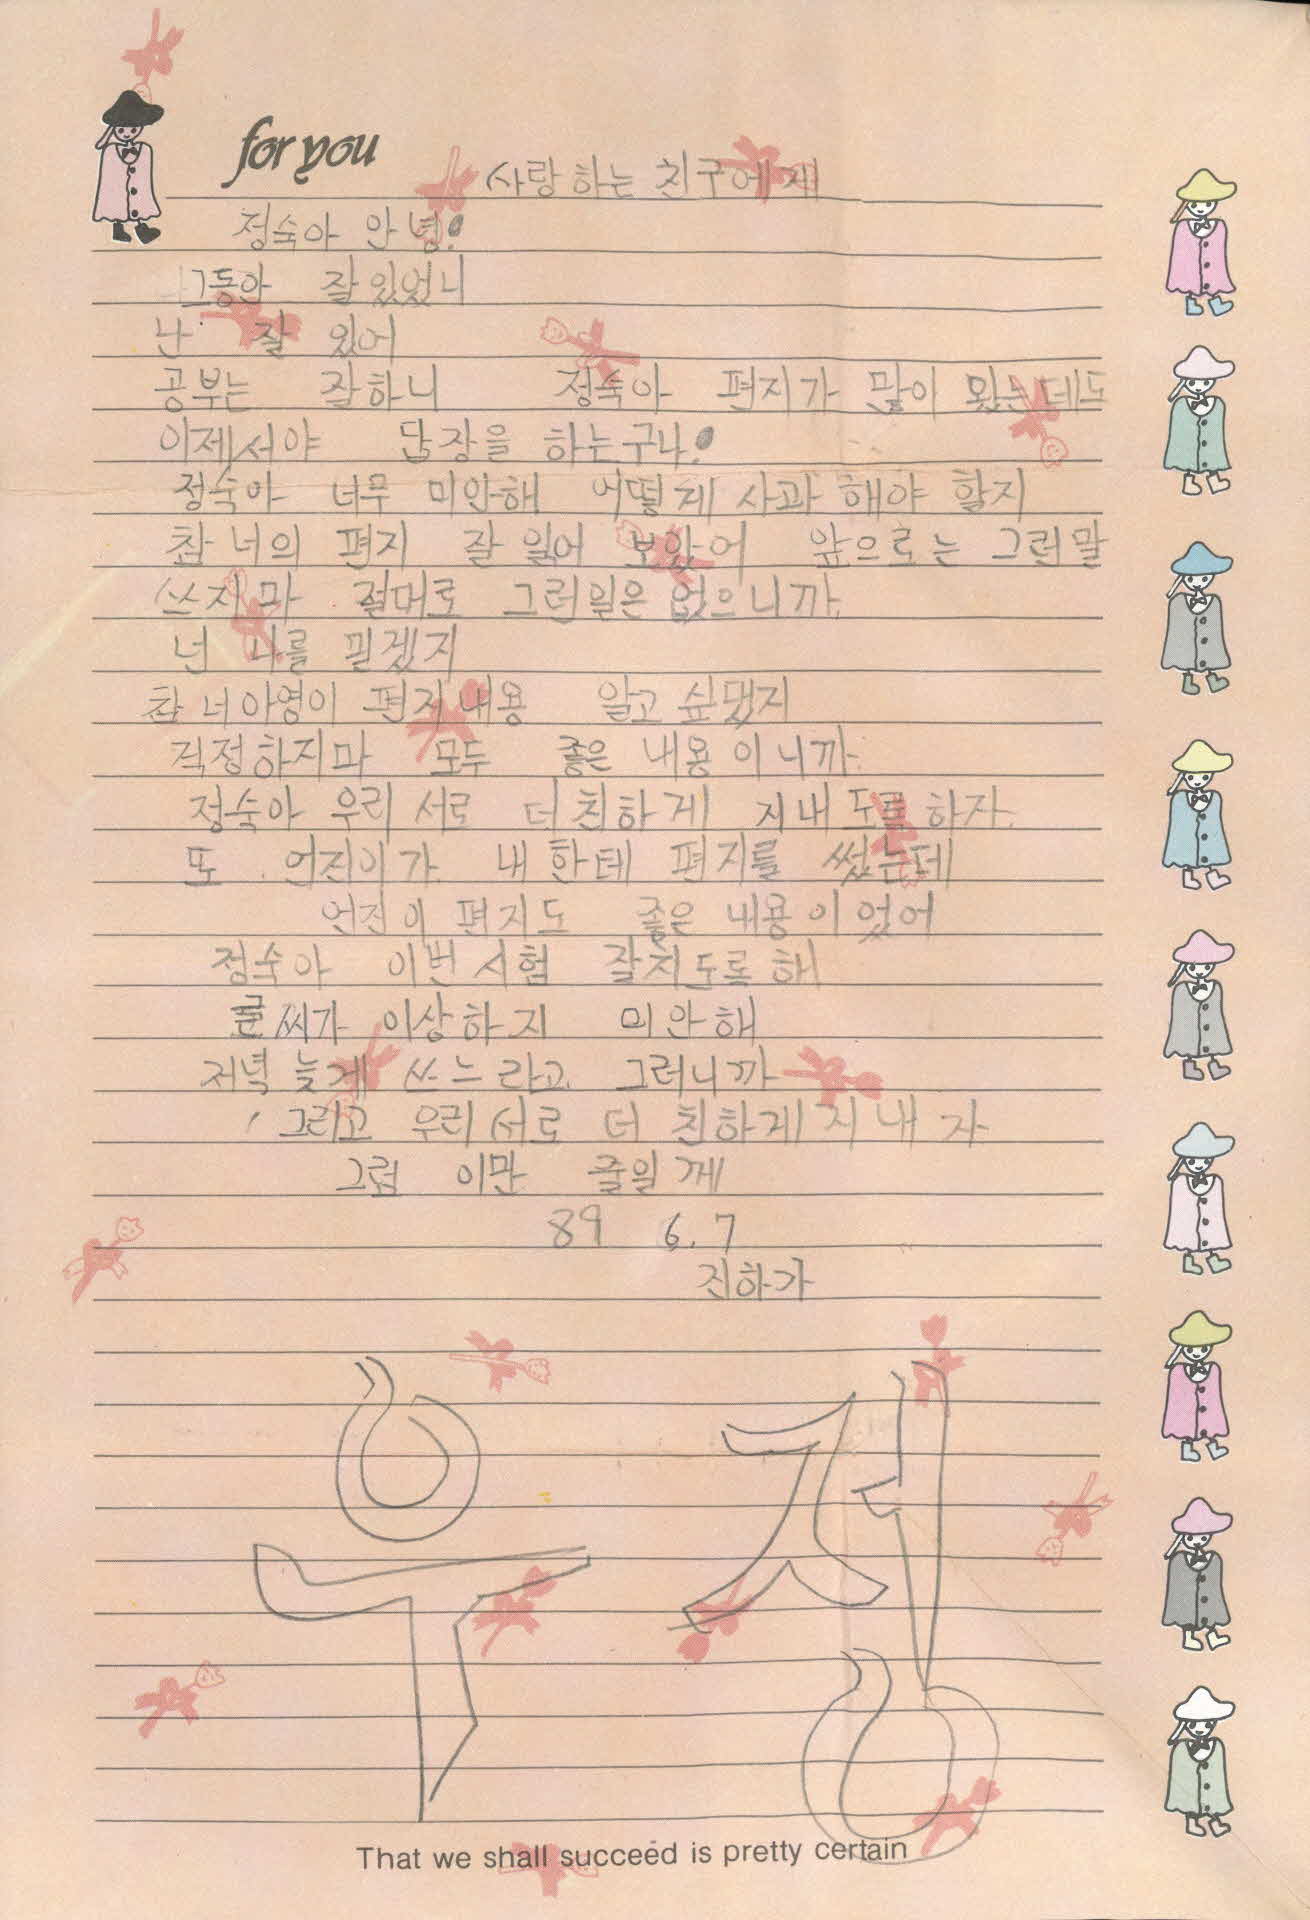 for you
사랑하는 친구에게
정숙아 안녕!
그동안 잘 있었니
난 잘 있어
공부는 잘하니 정숙아 편지가 많이 왔는데도
이제서야 답장을 하는구나!
정숙아 너무 미안해 어떻게 사과 해야 할지
참 너의 편지 잘 읽어 보았어 앞으로는 그런말
쓰지마 절대로 그런일은 없으니까.
넌 나를 믿겠지
참 너 아영이 편지 내용 알고 싶댔지
걱정하지마 모두 좋은 내용 이니까.
정숙아 우리 서로 더 친하게 지내 도록 하자.
또 언진이가 내 한테 편지를 썼는데
언진이 편지도 좋은 내용 이었어
정숙아 이번 시험 잘치도록 해
글씨가 이상하지 미안해
저녁 늦게 쓰느라고 그러니까
그리고 우리 서로 더 친하게 지내자
그럼 이만 줄일께
89 6. 7
진하가
우정
That we shall succeed is pretty certain